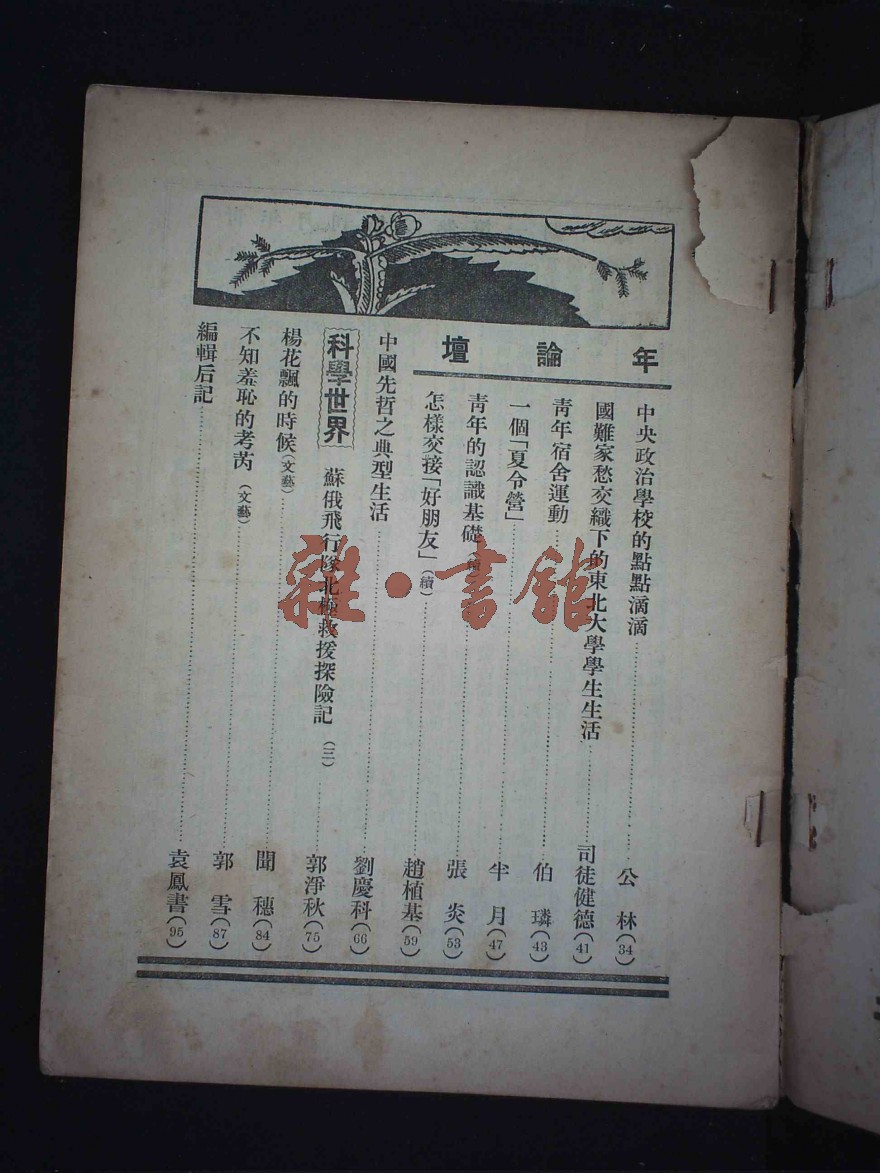 年論壇
中央政治學校的點點滴滴……公林(34)
國難家愁交織下的東北大學學生生活……司徒健德(41)
青年宿舍運動……伯璘(43)
一個「夏令營」……半月(47)
青年的認識基礎(續)……張炎(53)
怎樣交接「好朋友」(續)……趙植基(59)
中國先哲之典型生活……劉慶科(66)
科學世界 蘇俄飛行隊北極救援探險記(三)……郭淨秋(75)
楊花飄的時候(文藝)……聞穗(84)
不知羞恥的考芮(文藝)……郭雪(87)
編輯后記……袁鳳書(95)
雜·書館